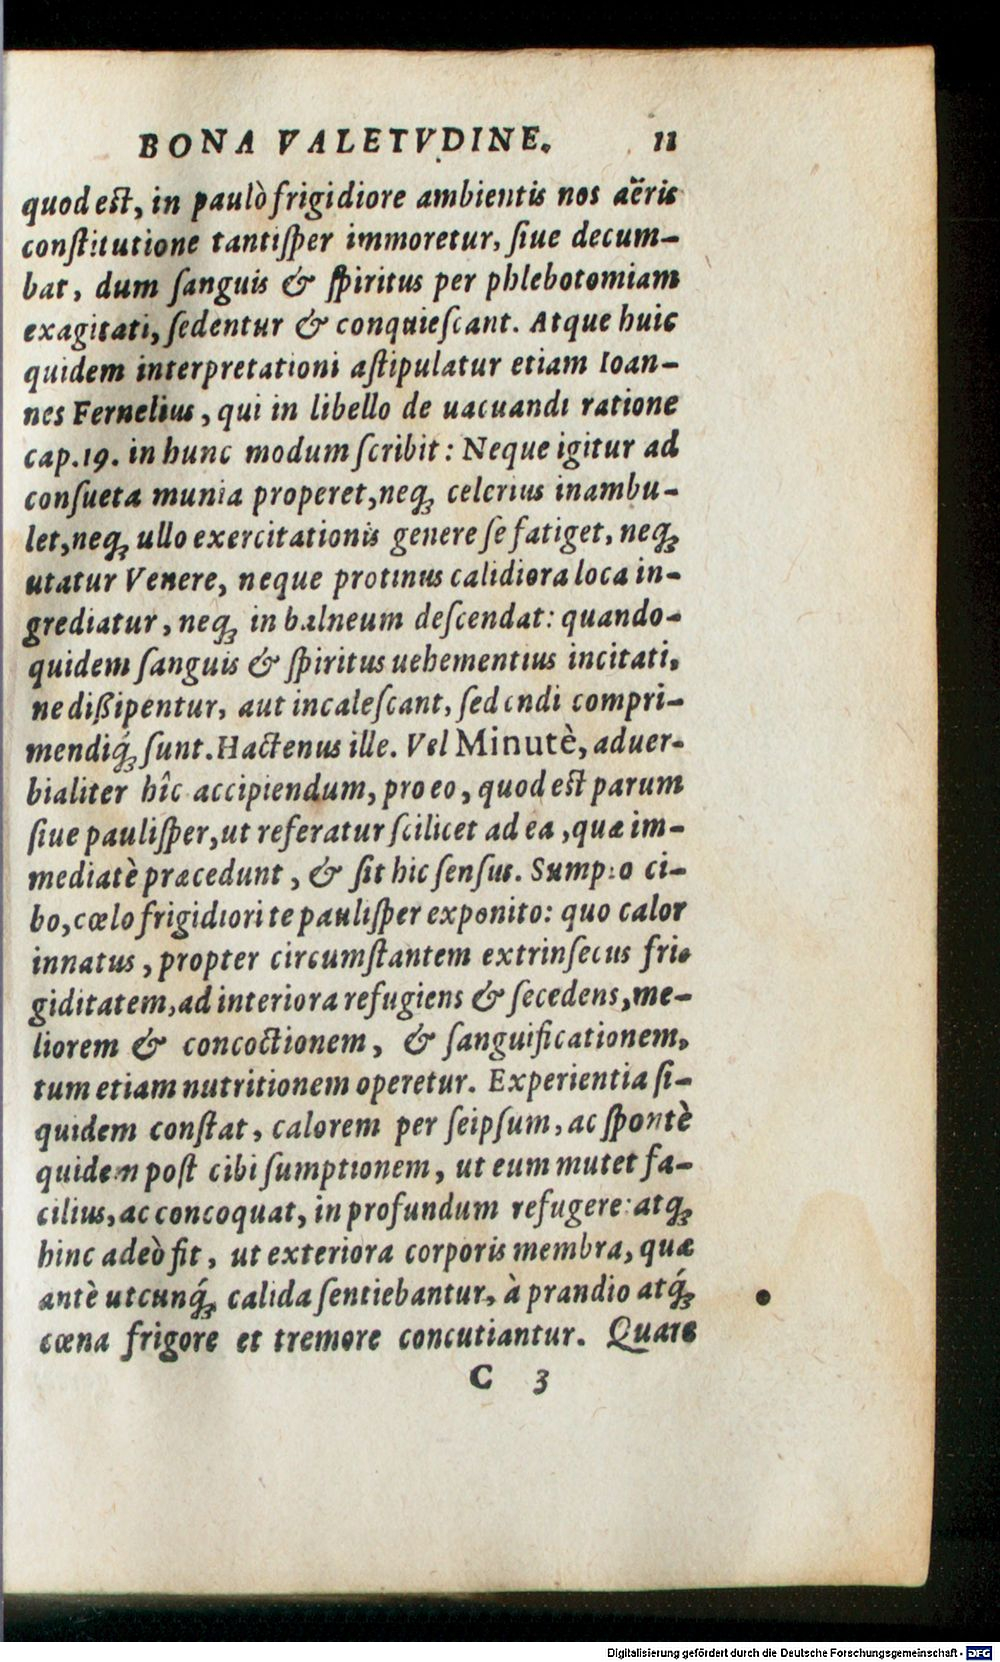 BONA VALETVDINE. 11
quod est, in paulò frigidiore ambientis nos aëris
constitutione tantisper immoretur, siue decum-
bat, dum sanguis & spiritus per phlebotomiam
exagitati, sedentur & conquiescant. Atque huic
quidem interpretationi astipulatur etiam Ioan-
nes Fernelius, qui in libello de uacuandi ratione
cap. 19. in hunc modum scribit: Neque igitur ad
consueta munia properet, neq; celerius inambu-
let, neq; ullo exercitationis genere se fatiget, neq;
utatur Venere, neque protinus calidiora loca in-
grediatur, neq; in balneum descendat: quando-
quidem sanguis & spiritus uehementius incitati,
ne dißipentur, aut incalescant, sedendi compri-
mendiq́; sunt. Hactenus ille. Vel Minutè, aduer-
bialiter hîc accipiendum, pro eo, quod est parum
siue paulisper, ut referatur scilicet ad ea, quæ im-
mediatè præcedunt, & sit hic sensus. Sumpto ci-
bo, cœlo frigidiori te paulisper exponito: quo calor
innatus, propter circumstantem extrinsecus fri-
giditatem, ad interiora refugiens & secedens, me-
liorem & concoctionem, & sanguificationem,
tum etiam nutritionem operetur. Experientia si-
quidem constat, calorem per seipsum, ac spontè
quidem post cibi sumptionem, ut eum mutet fa-
cilius, ac concoquat, in profundum refugere: atq;
hinc adeò fit, ut exteriora corporis membra, quæ
antè utcunq́; calida sentiebantur, à prandio atq́;
cœna frigore et tremore concutiantur. Quare
C 3
Digitalisierung gefördert durch die Deutsche Forschungsgemeinschaft - DFG